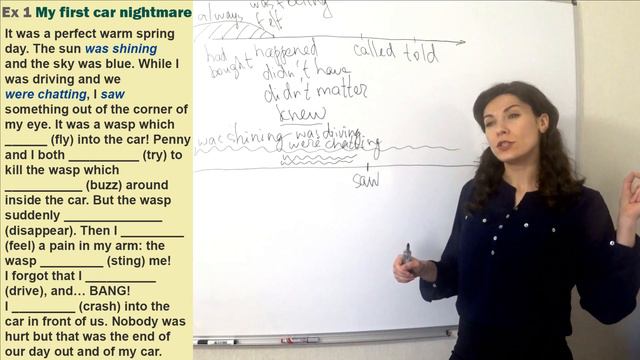 Ex 1 My first car nightmare
It was a perfect warm spring
day. The sun was shining
and the sky was blue. While I
was driving and we
were chatting, I saw
something out of the corner of
my eye. It was a wasp which
______ (fly) into the car! Penny
and I both __________ (try) to
kill the wasp which
___________ (buzz) around
inside the car. But the wasp
suddenly ______________
(disappear). Then I _________
(feel) a pain in my arm: the
wasp _________ (sting) me!
I forgot that I __________
(drive), and… BANG!
I _________ (crash) into the
car in front of us. Nobody was
hurt but that was the end of
our day out and of my car.
always felt
had happened called told
bought didn't have
didn't matter
knew
was shining was driving
were chatting
saw